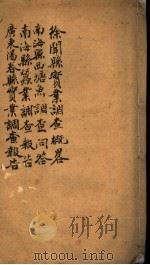 徐聞縣實業調查概畧
南海縣西樵魚調查問答
南海縣蠶業調查報告
廣東陽春縣實業調查報告